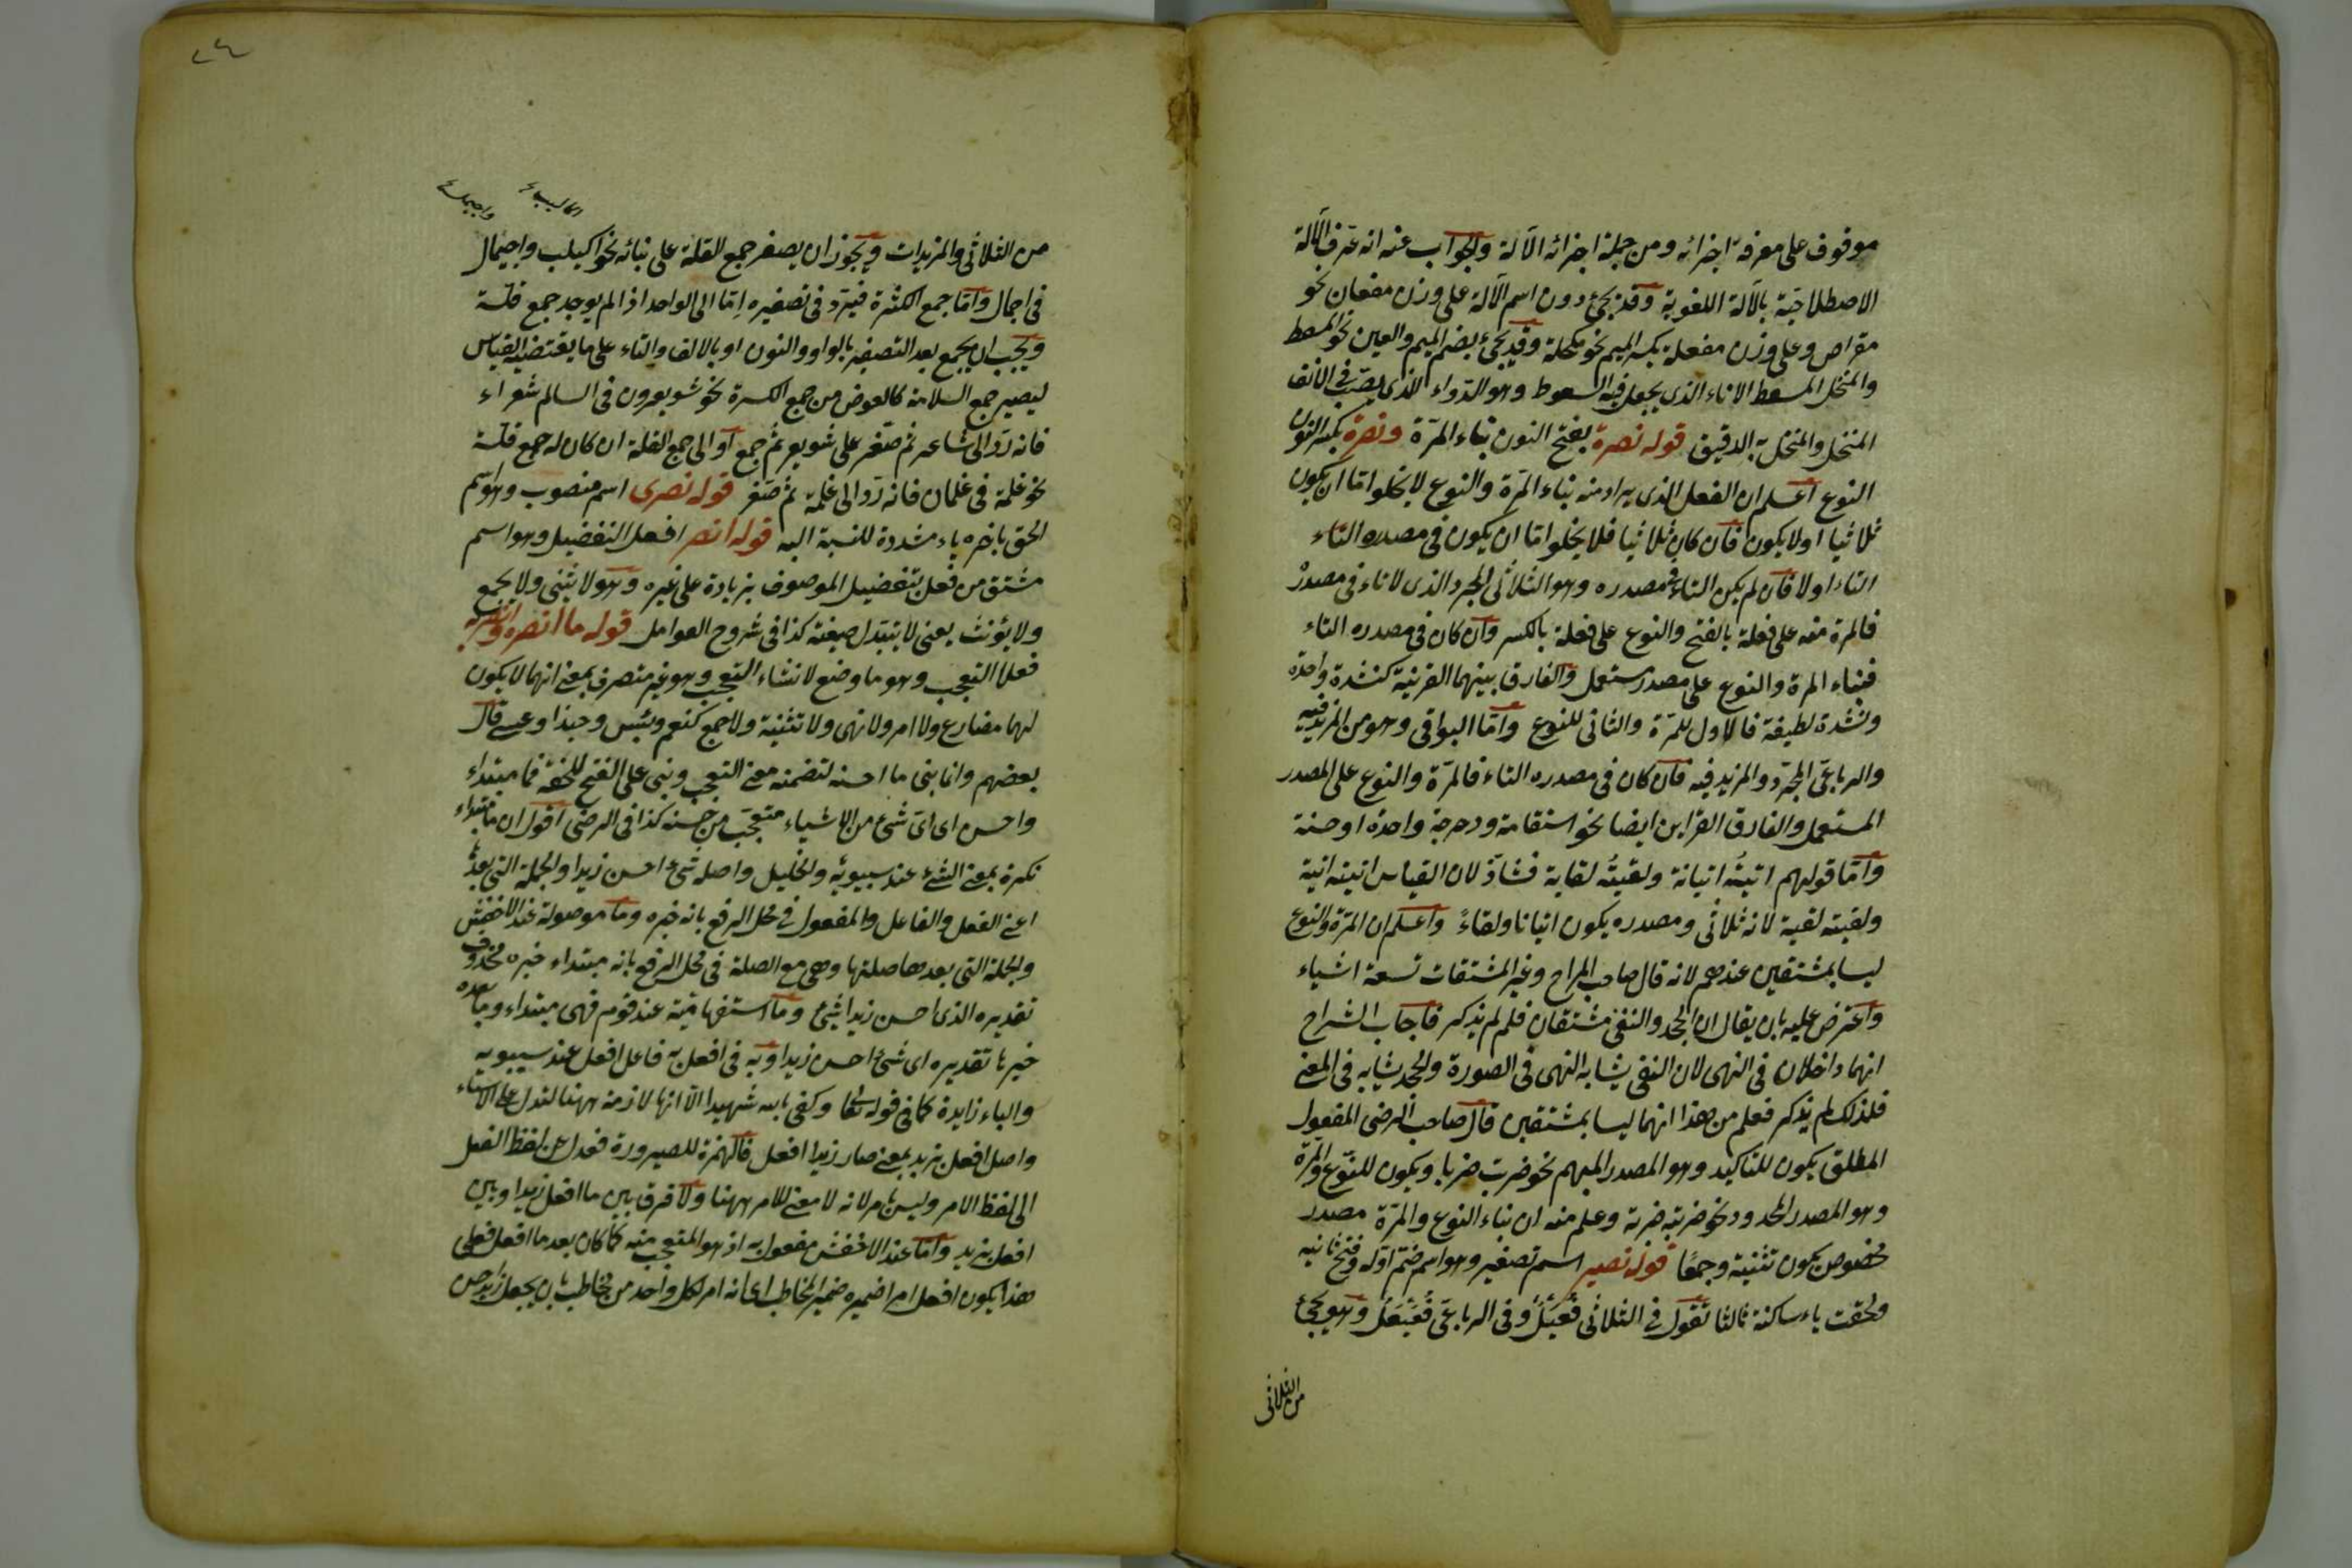 موقوف على معرفة اجزائه ومن جملة اجزائه الآلة والجواب عنه انه عرف الآلة
الاصطلاحية بالآلة اللغوية وقد يجئ دون اسم الآلة على وزن مفعال نحو
مقراض وعلى وزن مفعلة بكسر الميم نحو مكحلة وقد يجئ بضم الميم والعين نحو المسعط
والمنخل المسعط الاناء الذى يجعل فيه السعوط وهو الدواء الذى يصب فى الانف
المنخل والمنخل به الدقيق قوله نصرة بفتح النون بناء المرّة ونصرة بكسر النون
النوع اعلم ان الفعل الذى يراد منه بناء المرّة والنوع لا يخلوا اما ان يكون
ثلاثيا اولا يكون فان كان ثلاثيا فلا يخلوا اما ان يكون فى مصدره التاء
التاء اولا فان لم يكن التاء فى مصدره وهو الثلاثى المجرد الذى لا تاء فى مصدره
فالمرة منه على فعلة بالفتح والنوع على فعلة بالكسر وان كان فى مصدره التاء
فبناء المرة والنوع على مصدر مستعمل والفارق بينهما القرينة كنشدة واحدة
ونشدة لطيفة فالاول للمرّة والثانى للنوع واما البواقى وهو من المزيد فيه
والرباعى المجرّد والمزيد فيه فان كان فى مصدره التاء فالمرّة والنوع على المصدر
المستعمل والفارق القراين ايضا نحو استقامة ودحرجة واحدة او حسنة
وامّا قولهم اتيتُه اتيانة ولقيتُه لقاية فشاذّ لان القياس اتيته اتية
ولقيته لقية لانه ثلاثى ومصدره يكون اتيانا ولقاءً واعلم ان المرّة والنوع
ليسا بمشتقين عندهم لانه قال صاحب المراح وغير المشتقات تسعة اشياء
واعترض عليه بان يقال ان الجحد والنفى مشتقان فلم لم يذكر فاجاب الشراح
انهما داخلان فى النهى لان النفى يشابه النهى فى الصورة والجحد يشابه فى المعنى
فلذلك لم يذكر فعلم من هذا انهما ليسا بمشتقين قال صاحب الرضى المفعول
المطلق يكون للتاكيد وهو المصدر المبهم نحو ضربت ضربا ويكون للنوع والمرّة
وهو المصدر المحدود نحو ضربته ضربة وعلم منه ان بناء النوع والمرّة مصدر
مخصوص يكون تثنية وجمعًا قوله نصير اسم تصغير وهو اسم ضم اوّله وفتح ثانيه
ولحقت ياء ساكنة ثالثا تقول فى الثلاثى فُعَيْلٌ وفى الرباعى فُعَيْعَلٌ وهو يجئ
من الثلاثى
من الثلاثى والمزيدات ويجوز ان يصغر جمع القلة على بنائه نحو اكيلب واجيمال
فى اجمال وامّا جمع الكثرة فيردّ فى تصغيره اما الى الواحد اذا لم يوجد جمع قلّة
ويجب ان يجمع بعد التصغير بالواو والنون او بالالف والتاء على ما يقتضيه القياس
ليصير جمع السلامة كالعوض من جمع الكسرة نحو شويعرون فى السالم شعراء
فانه ردّ الى شاعر ثم صغّر على شويعر ثم جمع او الى جمع القلة ان كان له جمع قلّة
نحو غلمة فى غلمان فانه ردّ الى غلمة ثم صغر قوله نصرى اسم منصوب وهو اسم
الحق بآخره ياء مشددة للنسبة اليه قوله انصر افعل التفضيل وهو اسم
مشتق من فعل لتفضيل الموصوف بزيادة على غيره وهو لا يثنى ولا يجمع
ولا يؤنث يعنى لا يتبدل صيغته كذا فى شروح العوامل قوله ما انصره وانصر به
فعلا التعجب وهو ما وضع لانشاء التعجب وهو غير متصرف بمعنى انهما لا يكون
لهما مضارع ولا امر ولا نهى ولا تثنية ولا جمع كنعم وبئس وحبذا وعسى قال
بعضهم وانما بنى ما احسنه لتضمنه معنى التعجب وبنى على الفتح للخفة فما مبتداء
واحسن اى اىّ شئ من الاشياء متعجّب من حسنه كذا فى الرضى اقول ان ما مبتداء
نكرة بمعنى الشئ عند سيبويه والخليل واصله شئ احسن زيدا والجملة التى بعدها
اعنى الفعل والفاعل والمفعول فى محل الرفع بانه خبره وما موصولة عند الاخفش
والجملة التى بعدها صلتها وهى مع الصلة فى محل الرفع بانه مبتداء خبره محذوف
تقديره الذى احسن زيدا شئ وما استفهامية عند قوم فهى مبتداء وما بعده
خبرها تقديره اى شئ احسن زيدا وبه فى افعل به فاعل افعل عند سيبويه
والباء زايدة كما فى قوله تعالى وكفى بالله شهيدا الا انها لازمة ههنا لتدل على الانشاء
واصل افعل بزيد بمعنى صار زيدا افعل فالهمزة للصيرورة فعدل عن لفظ الفعل
الى لفظ الامر وليس بامر لانه لا معنى للامر ههنا ولا فرق بين ما افعل زيدا وبين
افعل بزيد واما عند الاخفش مفعول به اذ هو المتعجب منه كما كان بعد ما افعل فعلى
هذا يكون افعل امرا ضميره ضمير المخاطب اى انه امر لكل واحد من مخاطب بان يجعل زيدا حسن